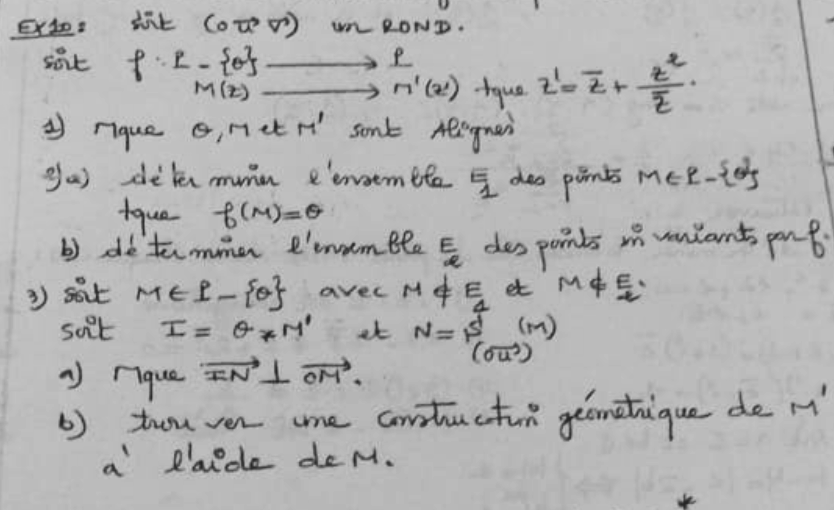 Ex10: soit (o u⃗ v⃗) un ROND.
soit f : P - {θ} ⟶ P
M(z) ⟶ M'(z') tque z' = z̄ + z²/z̄.
1) Mque θ, M et M' sont Alignés
2) a) déterminer l'ensemble E₁ des points M ∈ P - {θ}
tque f(M) = θ
b) déterminer l'ensemble E₂ des points invariants par f.
3) soit M ∈ P - {θ} avec M ∉ E₁ et M ∉ E₂.
soit I = θ * M' et N = S (M)
(o u⃗)
a) Mque IN⃗ ⊥ OM⃗.
b) trouver une construction géométrique de M'
a' l'aide de M.
*